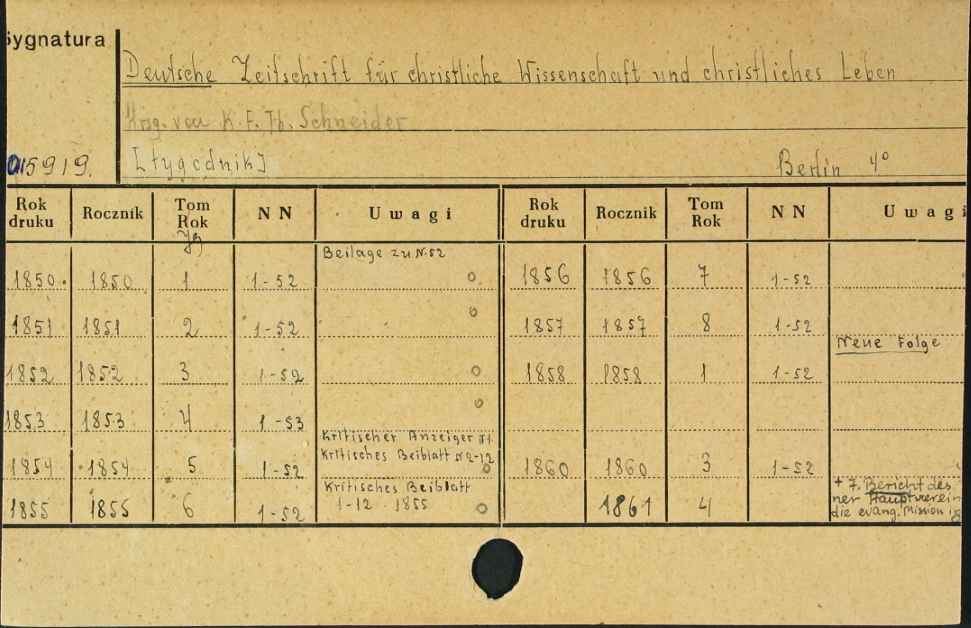 Sygnatura
Deutsche Zeitschrift für christliche Wissenschaft und christliches Leben
Hrsg. von K. F. Th. Schneider
015919. [tygodnik] Berlin 4°
Rok druku Rocznik Tom Rok NN Uwagi Rok druku Rocznik Tom Rok NN Uwagi
Jg
Beilage zu N. 52
1850. 1850 1 1-52 1856 1856 7 1-52
1851 1851 2 1-52 1857 1857 8 1-52
Neue Folge
1852 1852 3 1-52 1858 1858 1 1-52
1853 1853 4 1-53
Kritischer Anzeiger N1.
1854 1854 5 1-52 Kritisches Beiblatt N2-12 1860 1860 3 1-52
Kritisches Beiblatt + 7. Bericht des
1855 1855 6 1-52 1-12 1855 1861 4 ner Hauptverein
die evang. Mission i